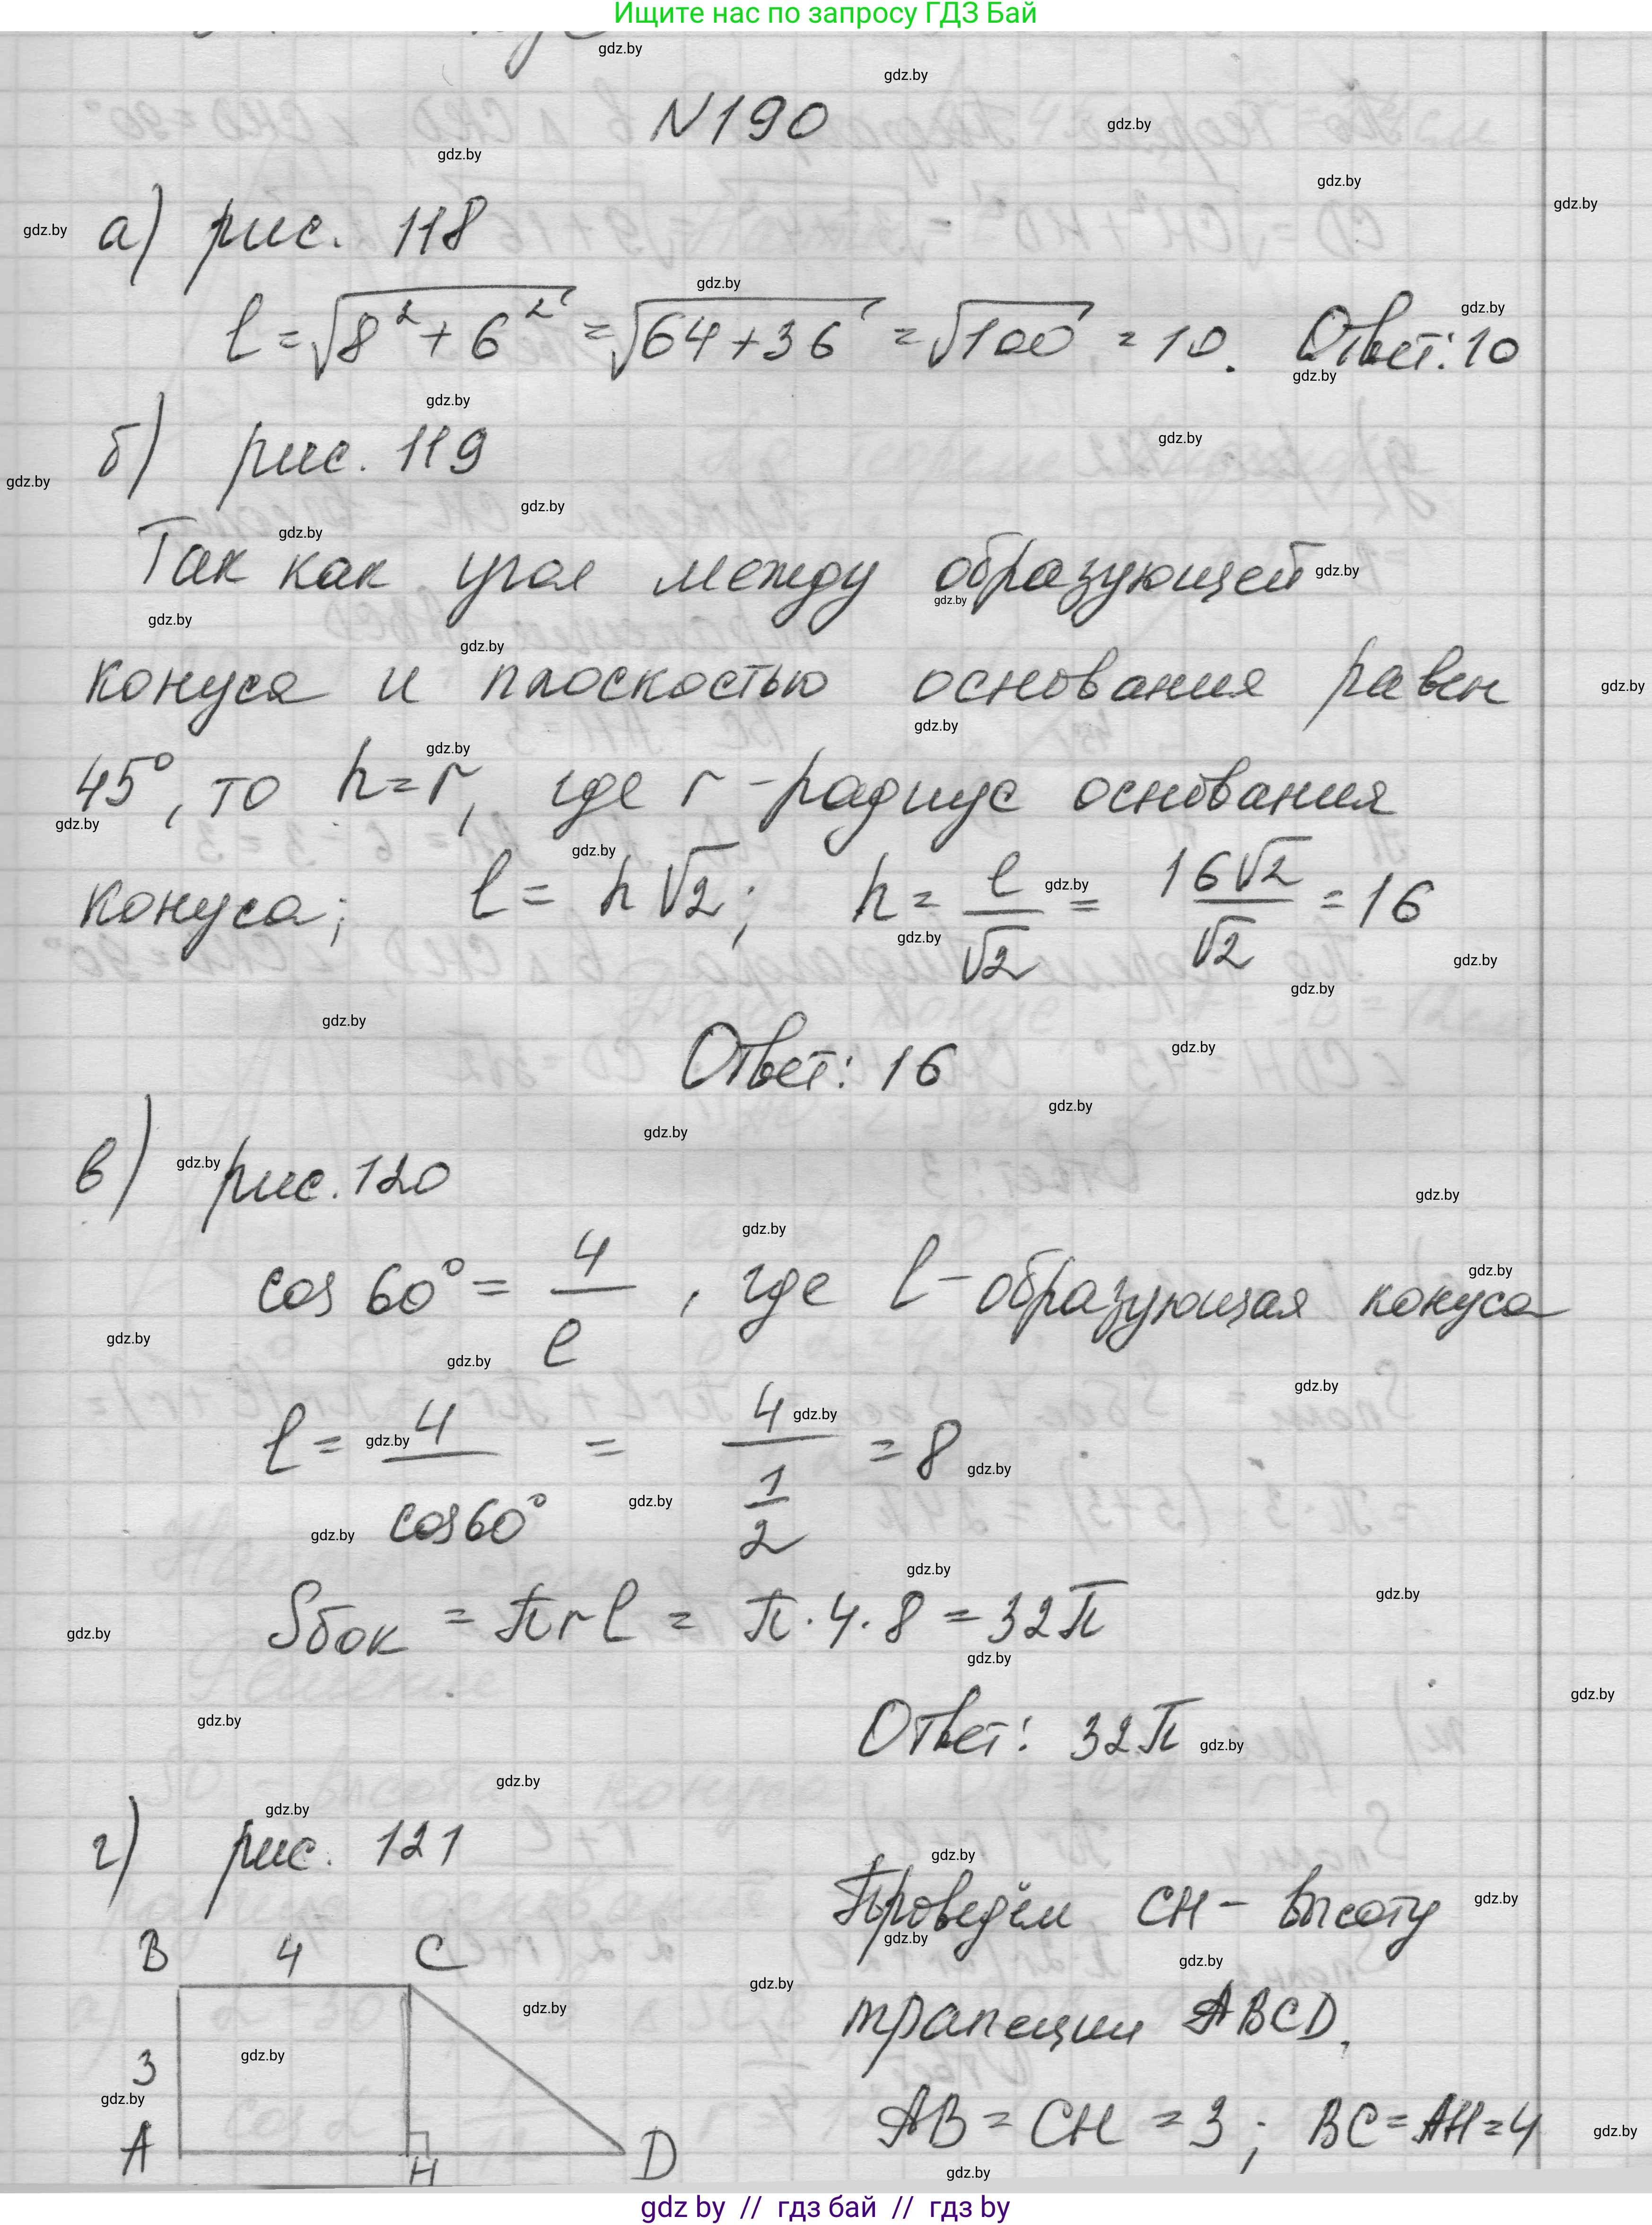 Ищите нас по запросу ГДЗ Бай
N190
а) рис. 118
l = √8² + 6² = √64 + 36 = √100 = 10. Ответ: 10
б) рис. 119
Так как угол между образующей
конуса и плоскостью основания равен
45°, то h = r, где r - радиус основания
конуса; l = h√2; h = l/√2 = 16√2/√2 = 16
Ответ: 16
в) рис. 120
cos 60° = 4/l, где l - образующая конуса
l = 4/cos60° = 4/(1/2) = 8
Sбок = πrl = π · 4 · 8 = 32π
Ответ: 32π
г) рис. 121
Проведём CH - высоту
трапеции ABCD.
AB = CH = 3; BC = AH = 4
B 4 C
3
A H D
gdz by // гдз бай // гдз by